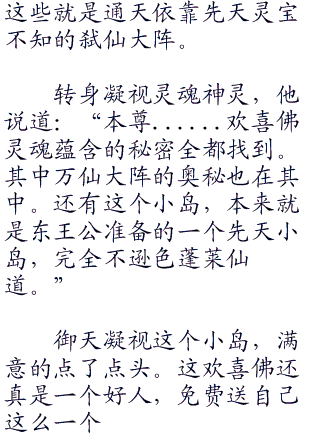 这些就是通天依靠先天灵宝
不知的弑仙大阵。
转身凝视灵魂神灵，他
说道：“本尊......欢喜佛
灵魂蕴含的秘密全都找到。
其中万仙大阵的奥秘也在其
中。还有这个小岛，本来就
是东王公准备的一个先天小
岛，完全不逊色蓬莱仙
道。”
御天凝视这个小岛，满
意的点了点头。这欢喜佛还
真是一个好人，免费送自己
这么一个